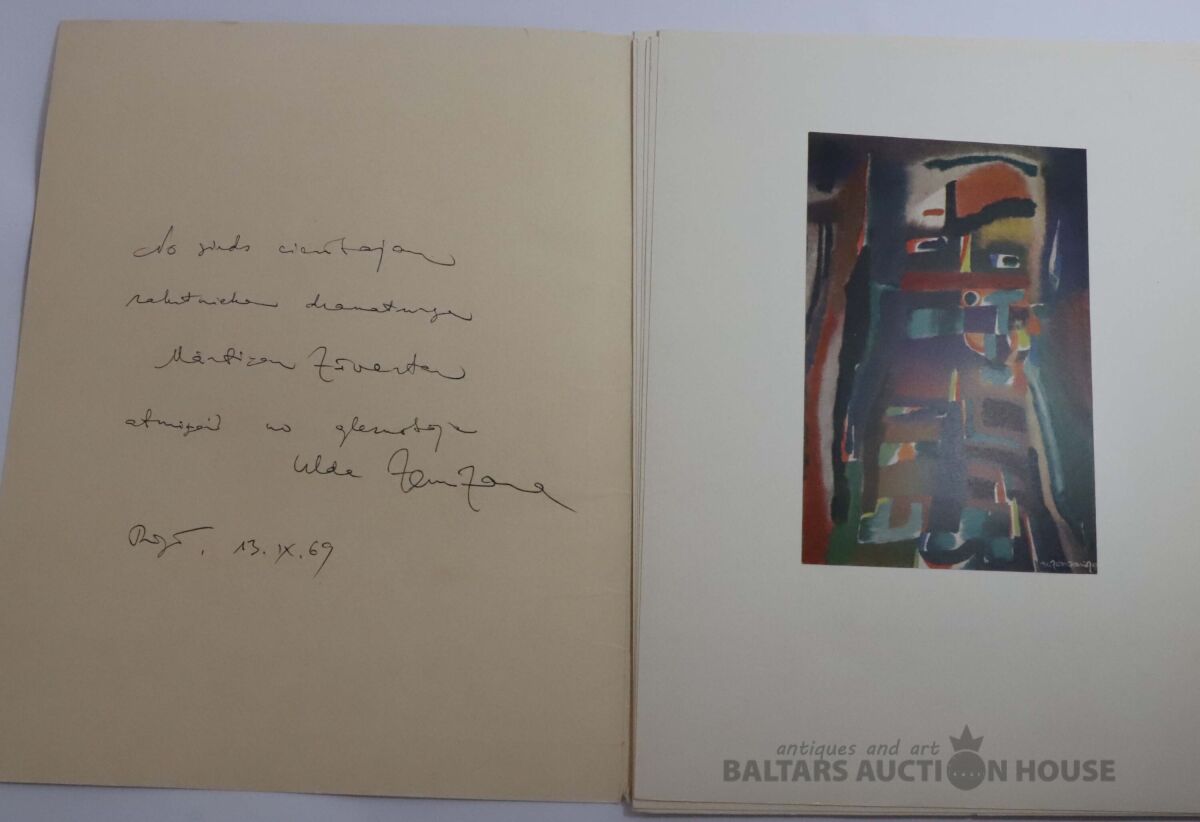 No sirds cienītajam
rakstniekam dramaturgam
Mārtiņam Zīvertam
atmiņai no gleznotāja
Ulda Zemzara
Rīgā. 13.IX.69
antiques and art
BALTARS AUCTION HOUSE